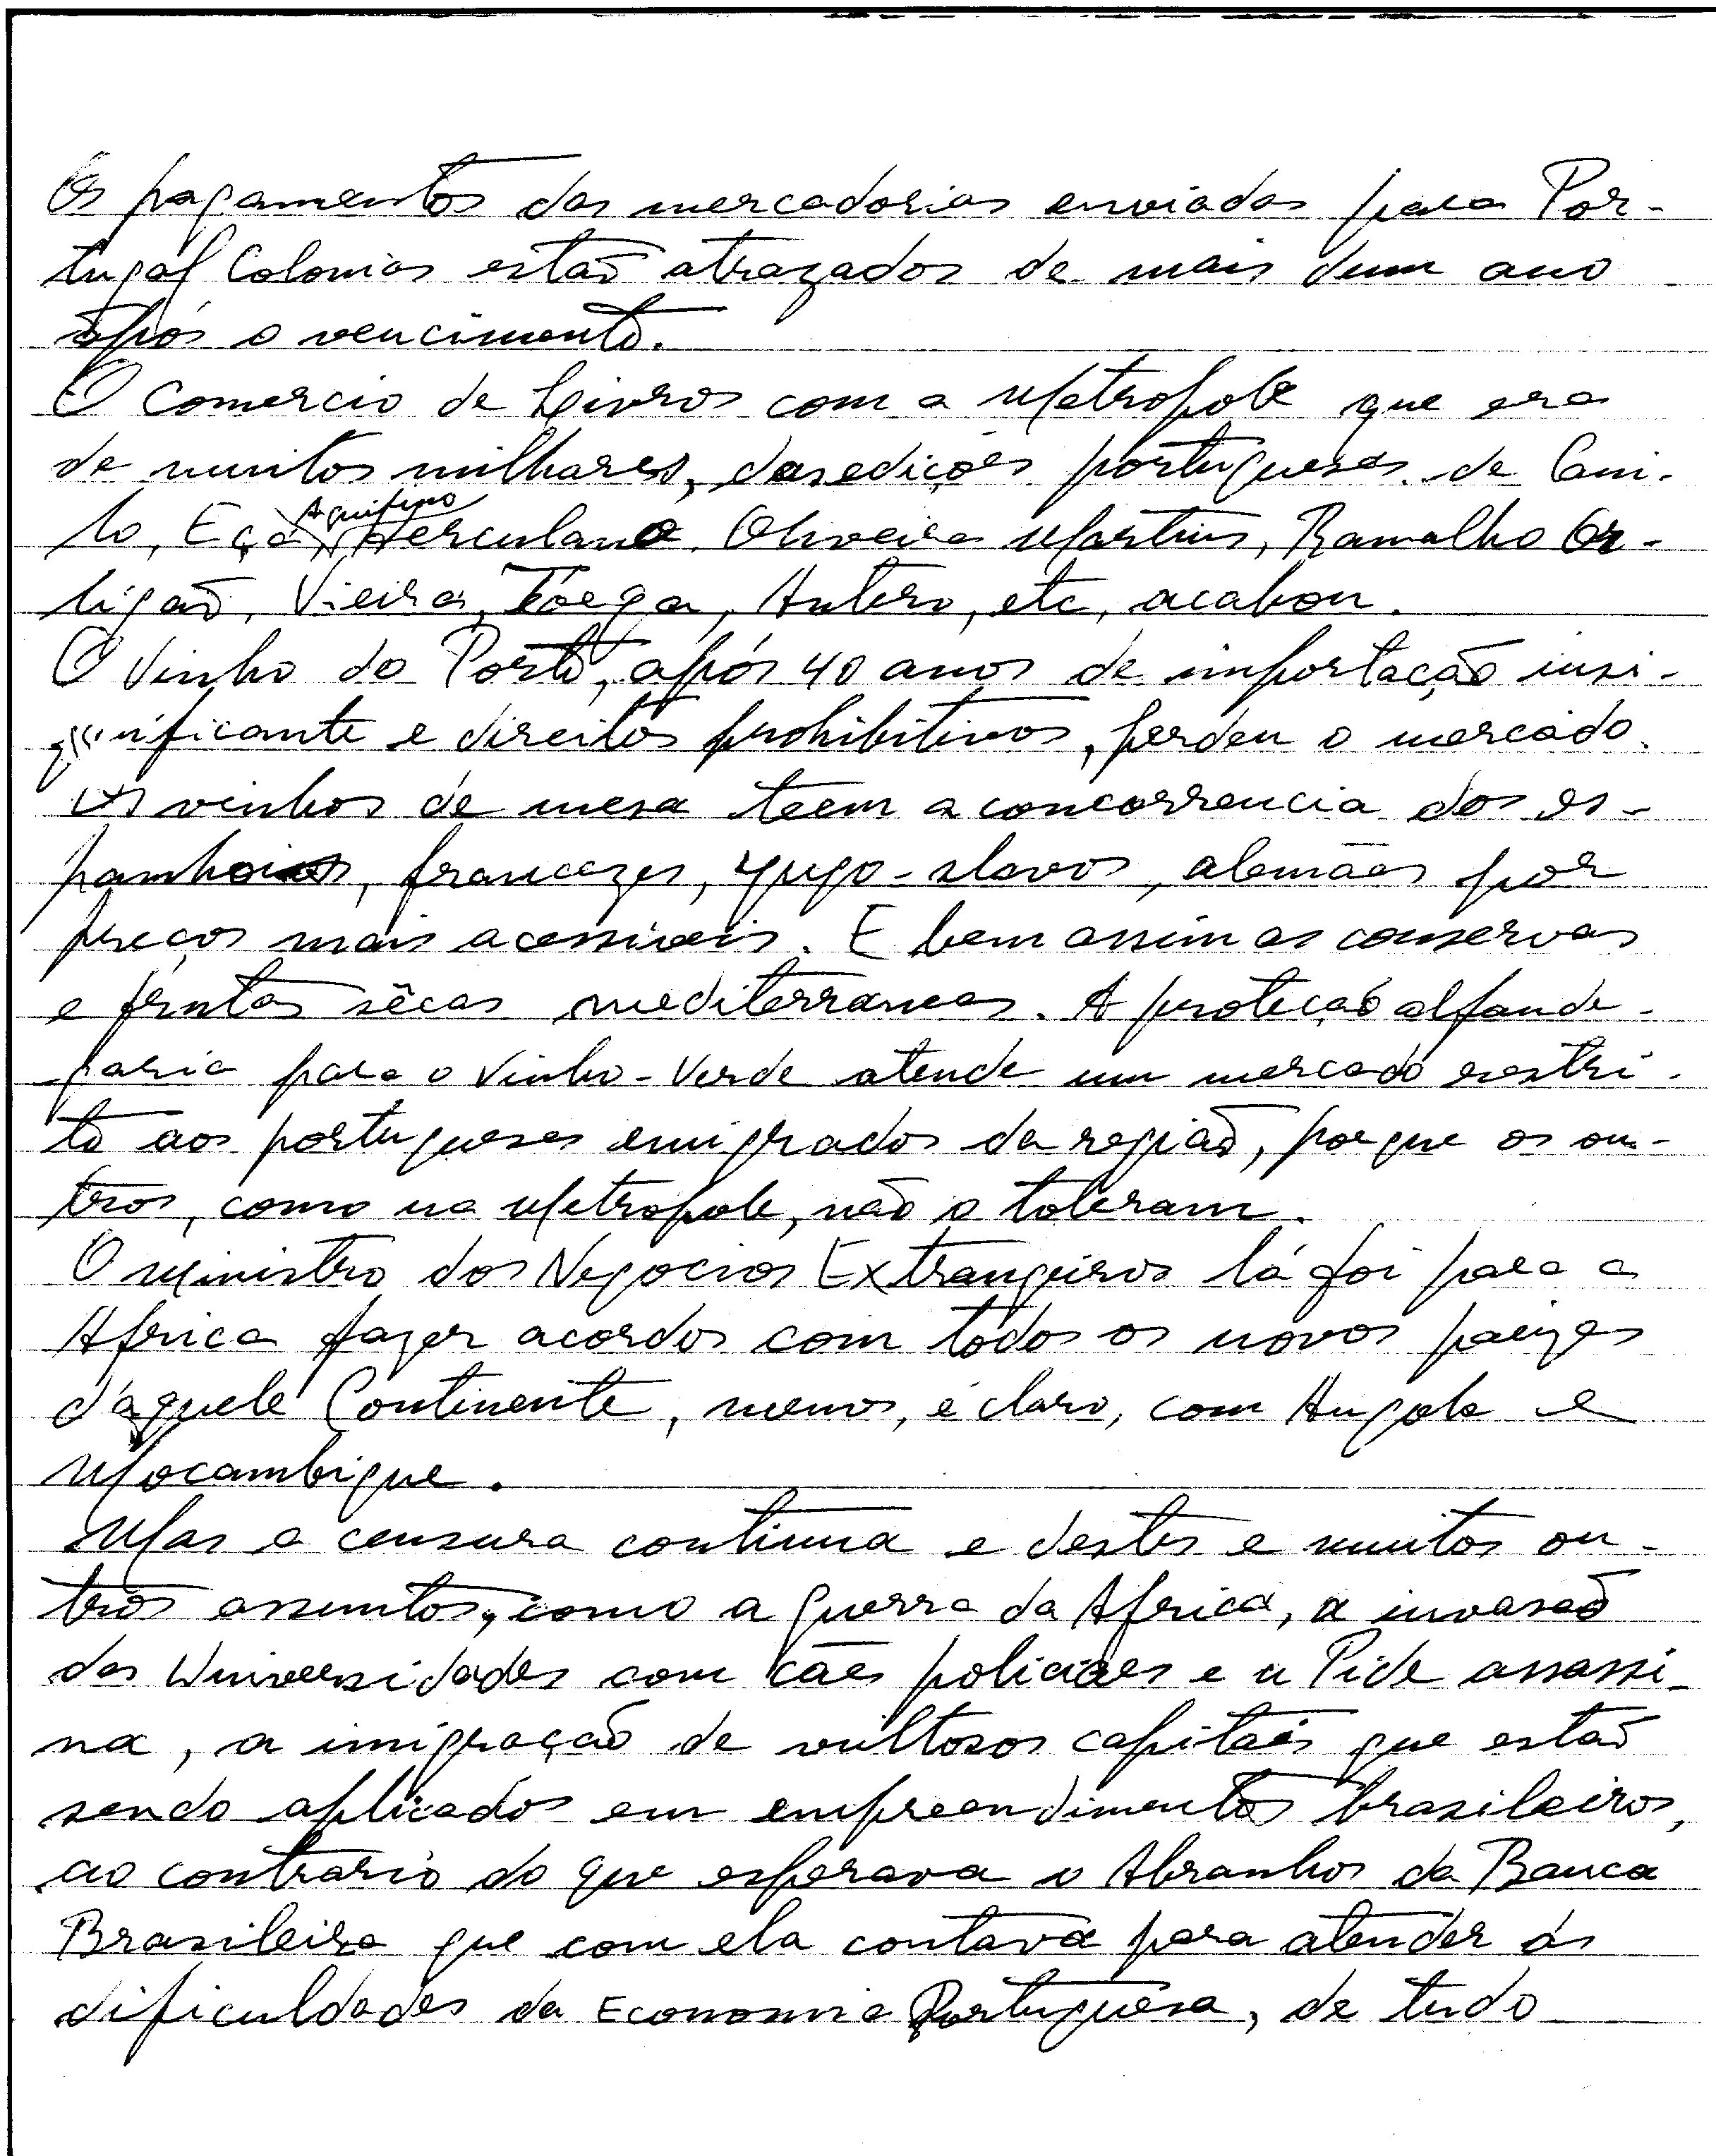 Os pagamentos das mercadorias enviadas para Por-
tugal Colonias estão atrazados de mais dum ano
após o vencimento.
O Comercio de Livros com a Metropole que era
de muitos milhares, das edições portuguesas de Cami-
lo, Eça, Aquilino Herculano, Oliveira Martins, Ramalho Or-
tigão, Vieira, Torga, Antero, etc, acabou.
O Vinho do Porto, após 40 anos de importação insi-
gnificante e direitos prohibitivos, perdeu o mercado.
Os vinhos de mesa teem a concorrencia dos es-
panhois, francezes, yugo-slavos, alemães por
preços mais acessiveis. E bem assim as conservas
e frutas sêcas mediterraneas. A proteção alfande-
garia para o Vinho-Verde atende um mercado restri-
to aos portugueses emigrados da região, porque os ou-
tros, como na Metropole, não o toleram.
O Ministro dos Negocios Extrangeiros lá foi para a
Africa fazer acordos com todos os novos paizes
d'aquele Continente, menos, é claro, com Angola e
Mocambique.
Mas a censura continua e destes e muitos ou-
tros assuntos, como a guerra da Africa, a invasão
das Universidades com cães policiaes e a Pide assassi-
na, a imigração de vultosos capitães que estão
sendo aplicados em empreendimentos brasileiros,
ao contrario do que esperava o Abranhos da Banca
Brasileira que com ela contava para atender ás
dificuldades da Economia Portuguêsa, de tudo